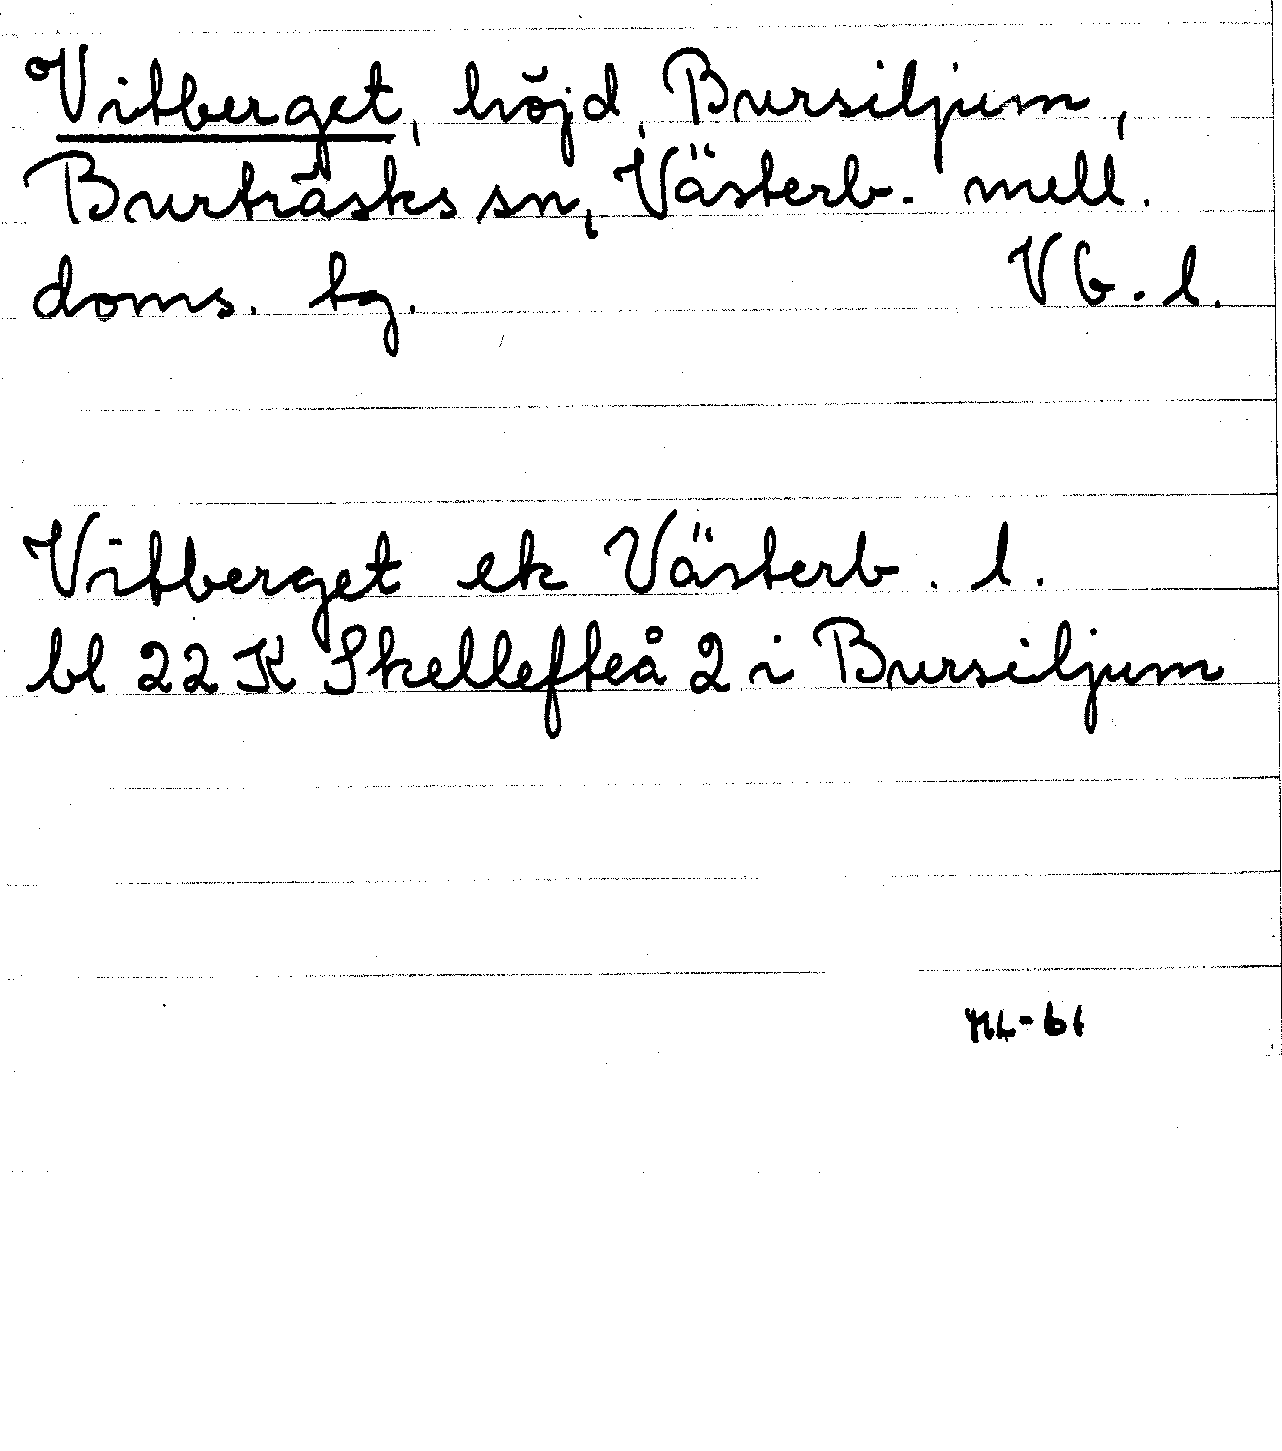 Vitberget, höjd, Bursiljum,
Burträsks sn, Västerb. mell.
doms. tg. Vb. l.
Vitberget ek Västerb. l.
bl 22 K Skellefteå 2 i Bursiljum